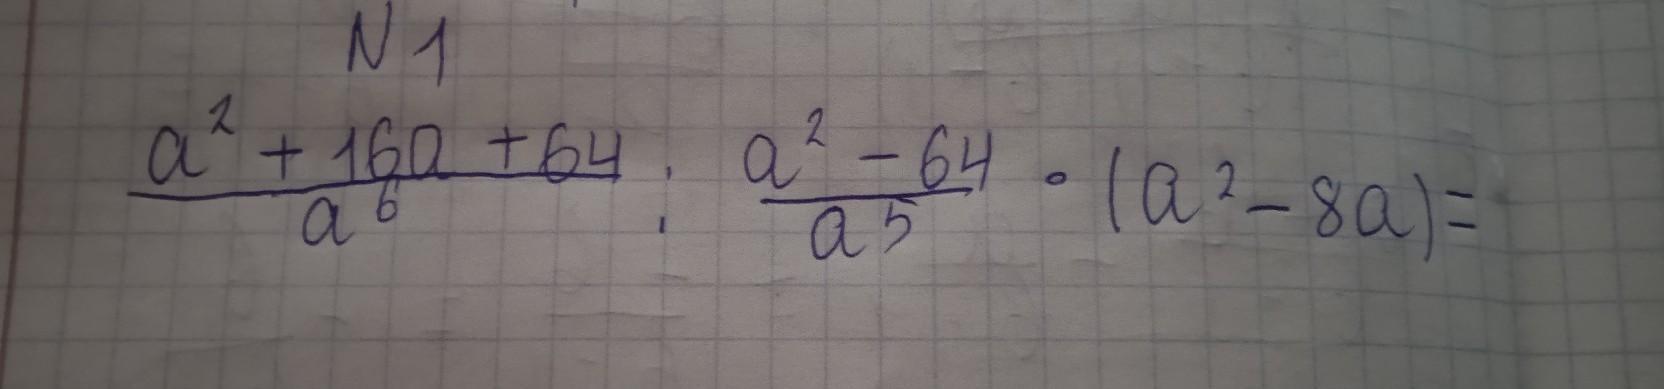 N 1
(a² + 16a + 64)/a⁶ : (a² - 64)/a⁵ · (a² - 8a) =